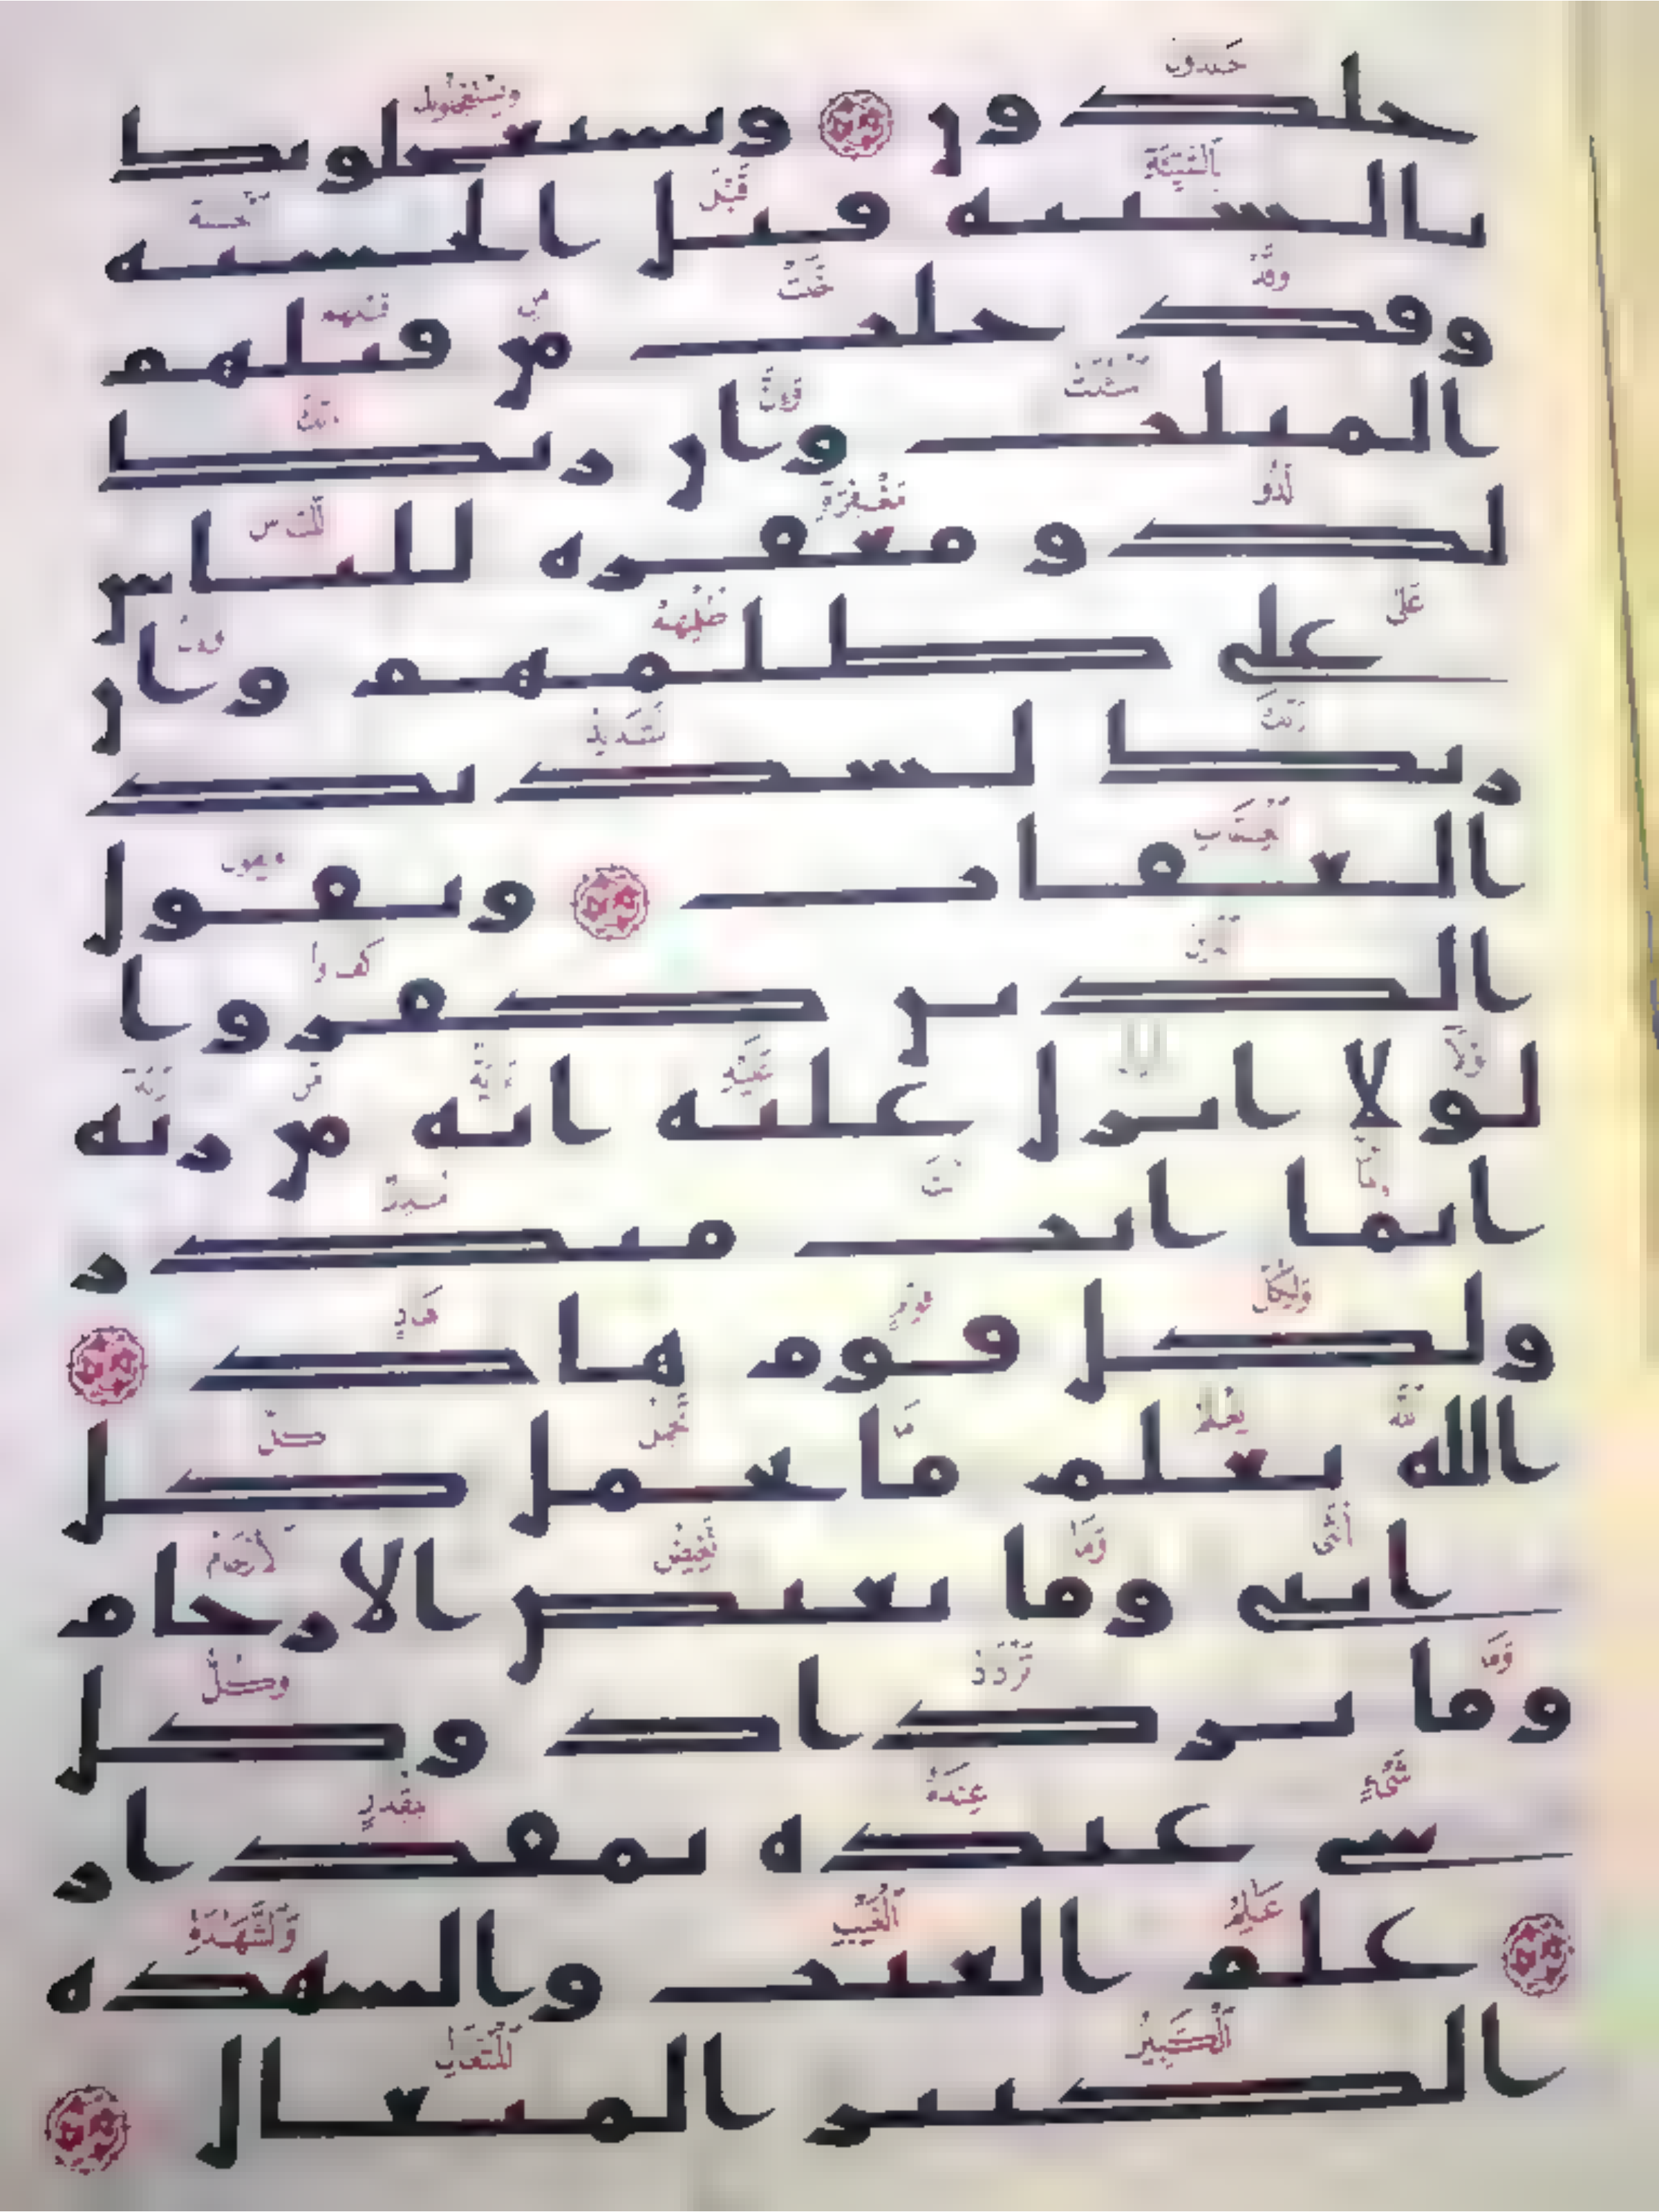 خلدون ويستعجلونك
بالسيئة قبل الحسنة
وقد خلت من قبلهم
المثلت وان ربك
لذو مغفرة للناس
على ظلمهم وان
ربك لشديد
العقاب ويقول
الذين كفروا
لولا انزل عليه اية من ربه
انما انت منذر
ولكل قوم هاد
الله يعلم ما تحمل كل
انثى وما تغيض الارحام
وما تزداد وكل
شىء عنده بمقدار
علم الغيب والشهدة
الكبير المتعال